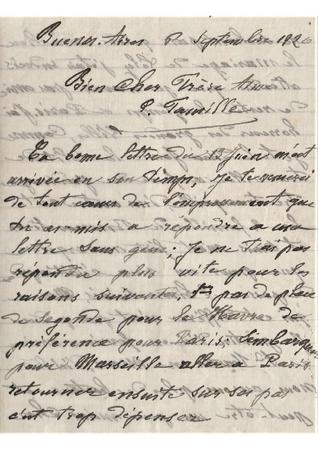 Buenos-Aires 8 Septembre 1920
Bien Cher Frère
&
Famille
Ta bonne lettre du 13 Juin m'est
arrivée en son temps, je te remercie
de tout cœur de l'empressement que
tu as mis a repondre a ma
lettre sans ; je ne t'ai pas
repondu plus vite pour les
raisons suivantes, 1º pas de place
de segonde pour le Havre de
préférence pour Paris; s'embarquer
pour Marseille aller a Paris
retourner ensuite sur ses pas
c'est trop dépenser